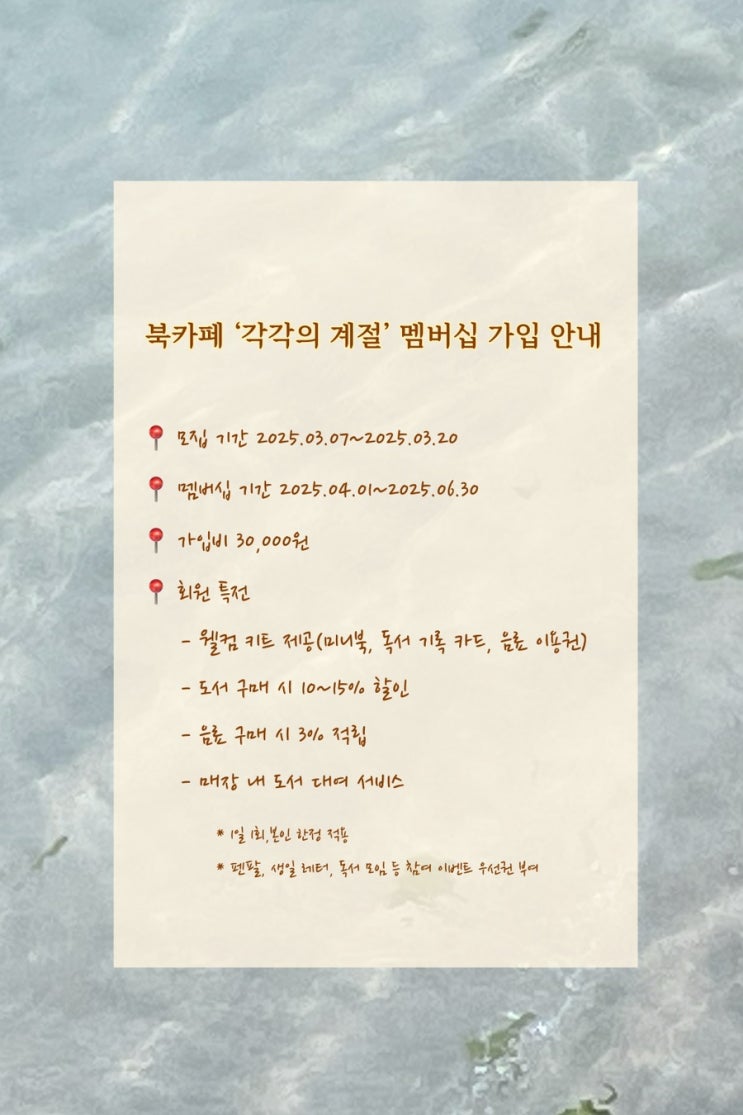 북카페 ‘각각의 계절’ 멤버십 가입 안내
모집 기간 2025.03.07~2025.03.20
멤버십 기간 2025.04.01~2025.06.30
가입비 30,000원
회원 특전
- 웰컴 키트 제공(미니북, 독서 기록 카드, 음료 이용권)
- 도서 구매 시 10~15% 할인
- 음료 구매 시 3% 적립
- 매장 내 도서 대여 서비스
* 1일 1회,본인 한정 적용
* 펜팔, 생일 레터, 독서 모임 등 참여 이벤트 우선권 부여